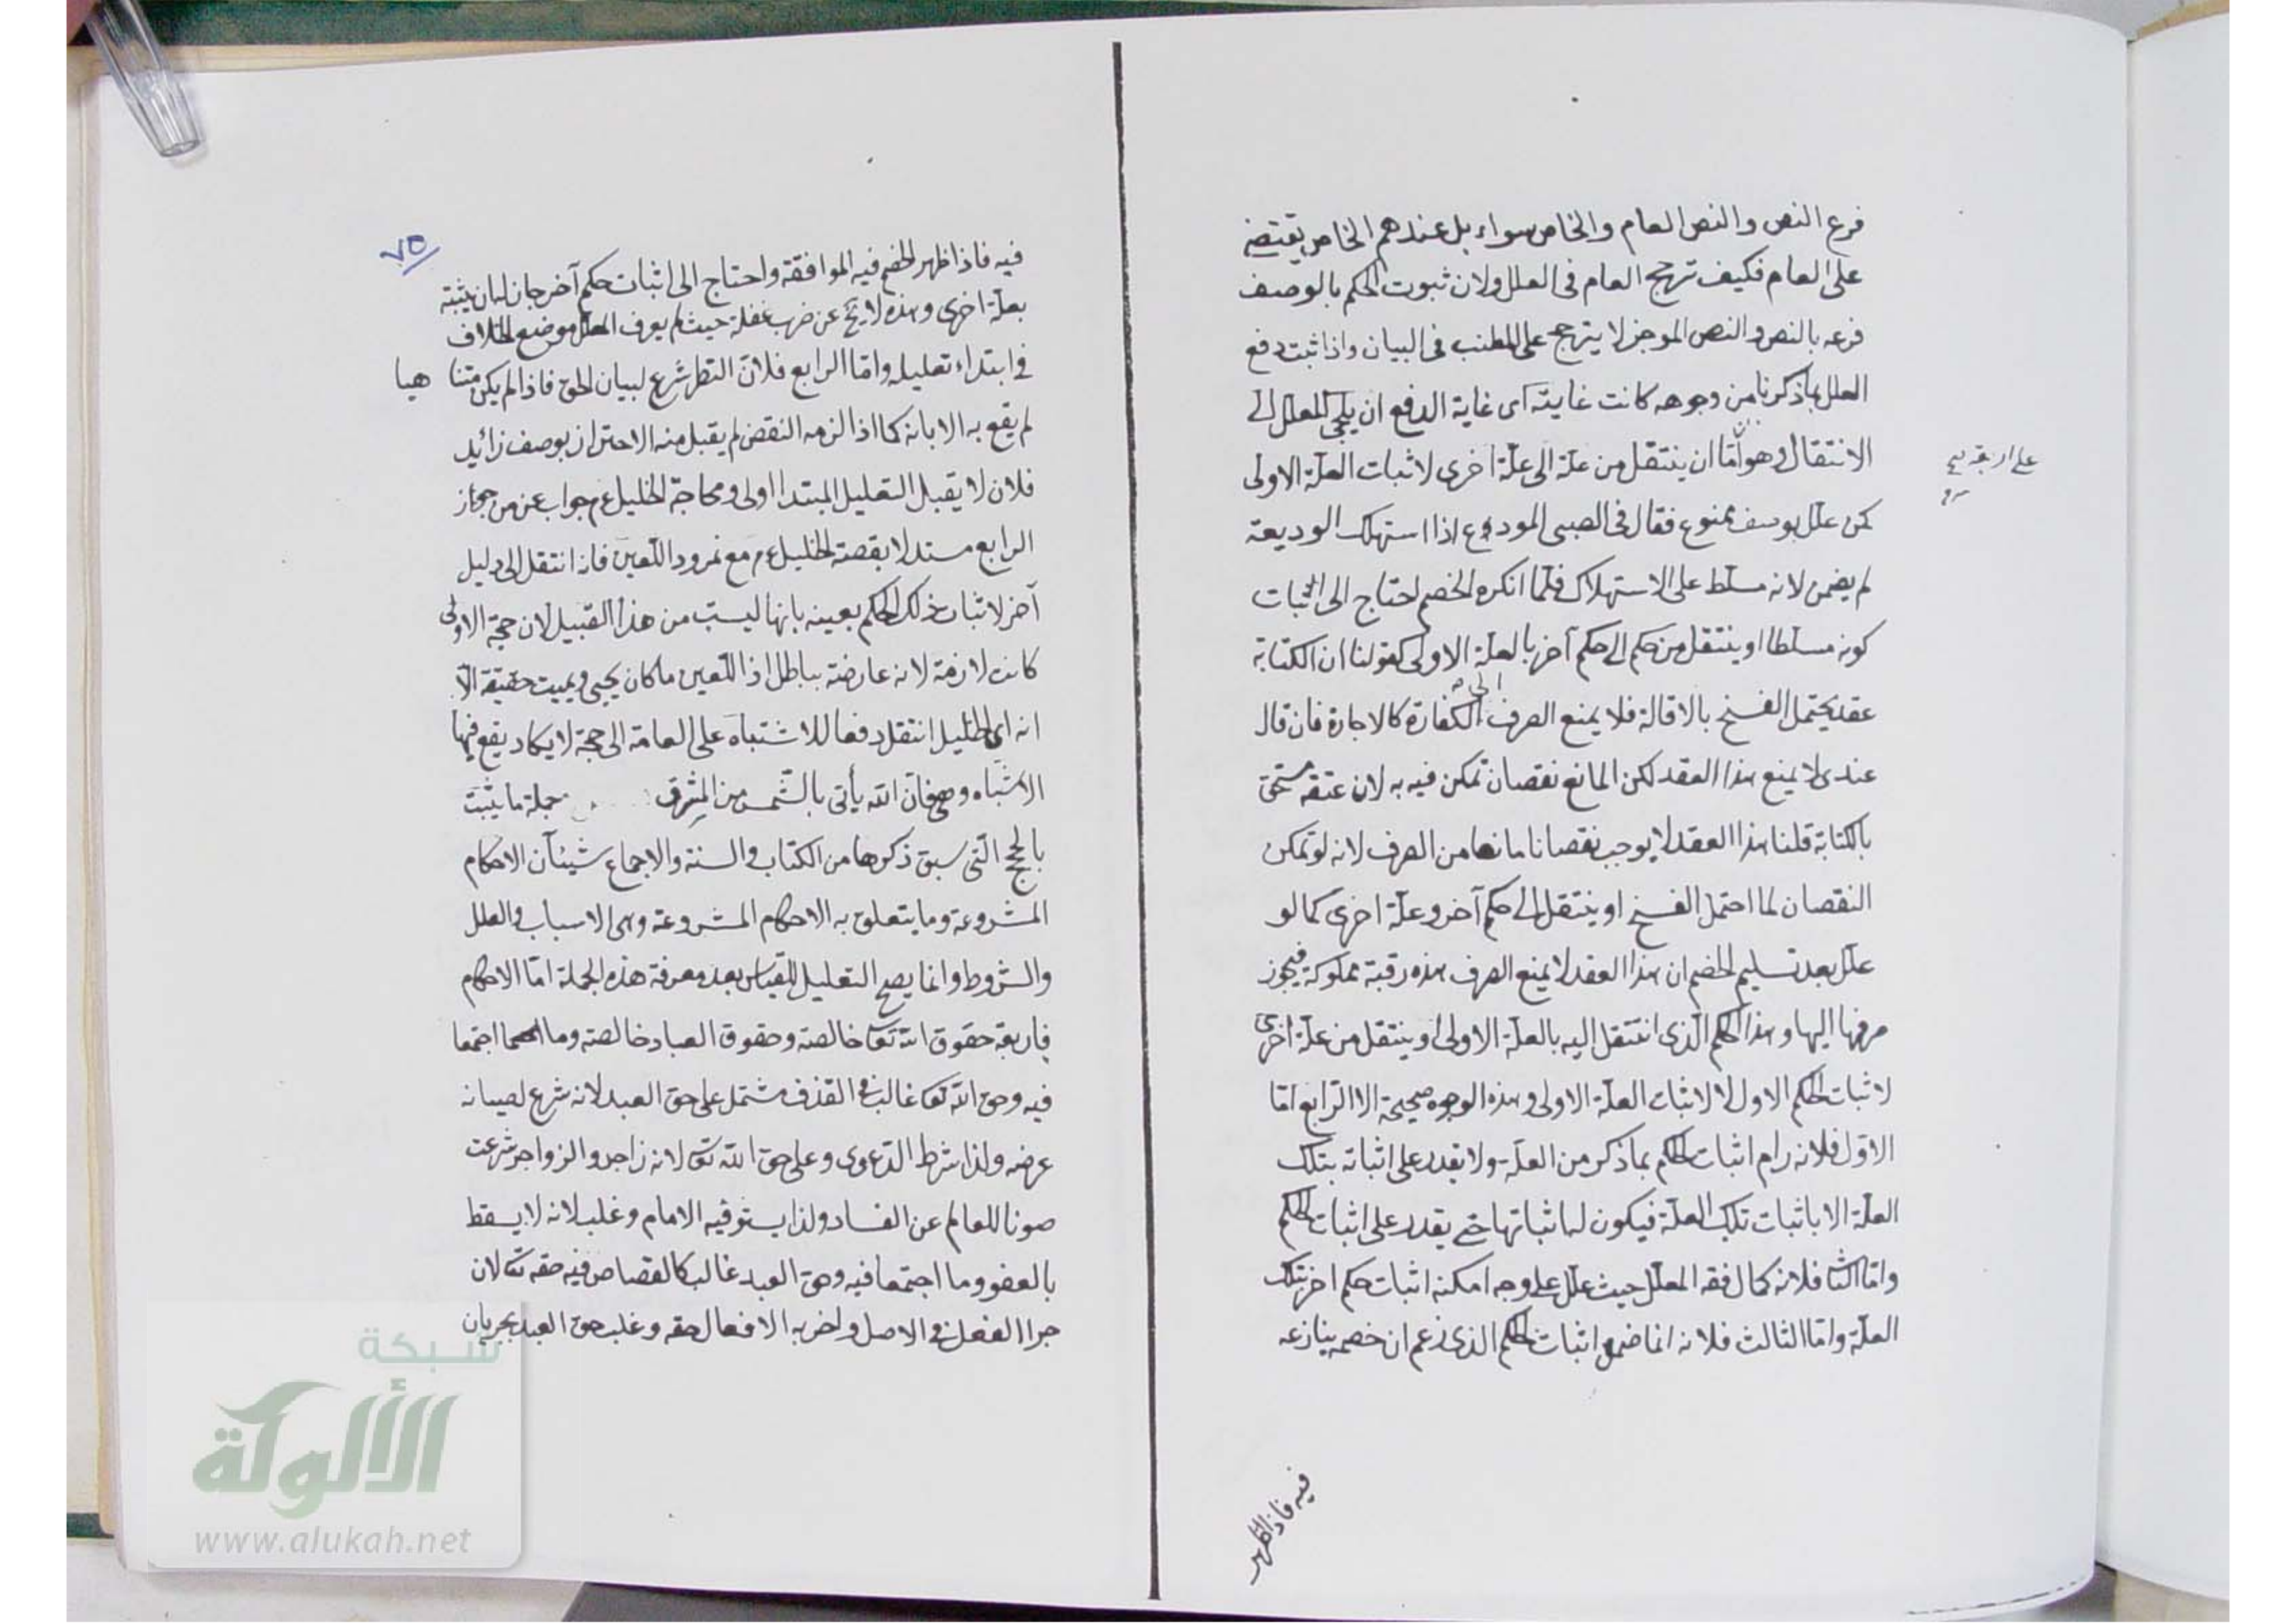 فرع النص والنص العام والخاص سواء بل عندهم الخاص يقتضى
على العام فكيف ترجح العام فى العلل ولان ثبوت الحكم بالوصف
فرعه بالنص والنص الموجز لا يترجح على المطنب فى البيان واذا ثبت دفع
العلل بما ذكرنا من وجوهه كانت غايته اى غاية الدفع ان يلجئ المعلل الى
الانتقال وهو اما ان ينتقل من علة الى علة اخرى لاثبات العلة الاولى
على اربعة
كمن علل بوصف ممنوع فقال فى الصبى المودوع اذا استهلك الوديعة
لم يضمن لانه مسلط على الاستهلاك فلما انكره الخصم احتاج الى اثبات
كونه مسلطا او ينتقل من حكم الى حكم آخر بالعلة الاولى كقولنا ان الكتابة
عقد يحتمل الفسخ بالاقالة فلا يمنع الصرف الى الكفارة كالاجارة فان قال
عندى لا يمنع هذا العقد لكن المانع نقصان تمكن فيه به لان عتقه مستحق
بالكتابة قلنا هذا العقد لا يوجب نقصانا مانعا من الصرف لانه لو تمكن
النقصان لما احتمل الفسخ او ينتقل الى حكم آخر وعلة اخرى كما لو
علل بعد تسليم الخصم ان هذا العقد لا يمنع الصرف هذه رقبة مملوكة فيجوز
صرفها اليها وهذا الحكم الذى انتقل اليه بالعلة الاولى او ينتقل من علة اخرى
لاثبات الحكم الاول لا لاثبات العلة الاولى وهذه الوجوه صحيحة الا الرابع اما
الاول فلانه رام اثبات الحكم بما ذكر من العلة ولا يقدر على اثباته بتلك
العلة الا باثبات تلك العلة فيكون له اثباتها حتى يقدر على اثبات الحكم
واما الثا فلانه كمال فقه المعلل حيث علل على وجه امكنه اثبات حكم اخر بتلك
العلة واما الثالث فلانه انما ضمن اثبات الحكم الذى زعم ان خصمه ينازعه
فيه فاذا ظهر
٧٥
فيه فاذا ظهر الخصم فيه الموافقة واحتاج الى اثبات حكم آخر جاز له ان يثبته
بعلة اخرى وهذه لا يخ عن ضرب غفلة حيث لم يعرف المعلل موضع الخلاف
فى ابتداء تعليله واما الرابع فلان النظر شرع لبيان الحق فاذا لم يكن متنا هيا
لم يقع به الابانة كما اذا لزمه النقض لم يقبل منه الاحتراز بوصف زائد
فلان لا يقبل التعليل المبتدا اولى ومحاجة الخليل عم جواب عن من جوز
الرابع مستدلا بقصة الخليل عم مع نمرود اللعين فانه انتقل الى دليل
آخر لاثبات ذلك الحكم بعينه بانها ليست من هذا القبيل لان حجة الاولى
كانت لازمة لانه عارضته بباطل اذ اللعين ما كان يحيى ويميت حقيقة الا
انه اى الخليل انتقل دفعا للاشتباه على العامة الى حجة لا يكاد يقع فيها
الاشتباه وهو فان الله يأتى بالشمس من المشرق جملة ما يثبت
بالحجج التى سبق ذكرها من الكتاب والسنة والاجماع شيئان الاحكام
المشروعة وما يتعلق به الاحكام المشروعة وهى الاسباب والعلل
والشروط وانما يصح التعليل للقياس بعد معرفة هذه الجملة اما الاحكام
فاربعة حقوق الله تعا خالصة وحقوق العباد خالصة وما اجتمعا
فيه وحق الله تعا غالب القذف مشتمل على حق العبد لانه شرع لصيانة
عرضه ولذا شرط الدعوى وعلى حق الله تعا لانه زاجر والزواجر شرعت
صونا للعالم عن الفساد ولذا يستوفيه الامام وغلب لانه لا يسقط
بالعفو وما اجتمعا فيه وحق العبد غالب كالقصاص فيه حقه تعا لان
جزا الفعل فى الاصل ولضربه الافعال حقه وغلب حق العبد بجريان
شبكة
الألوكة
www.alukah.net